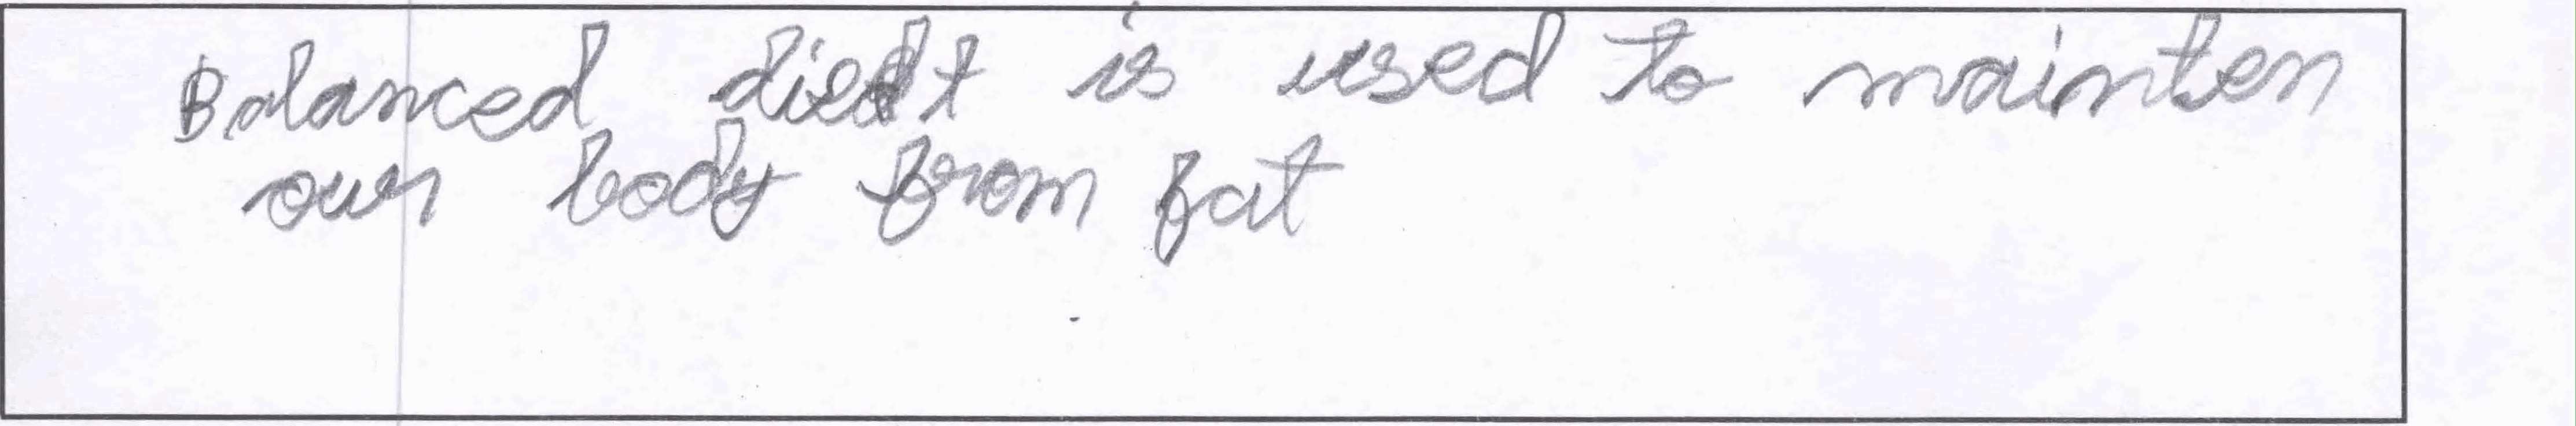 Balanced diet is used to mainten
our body from fat